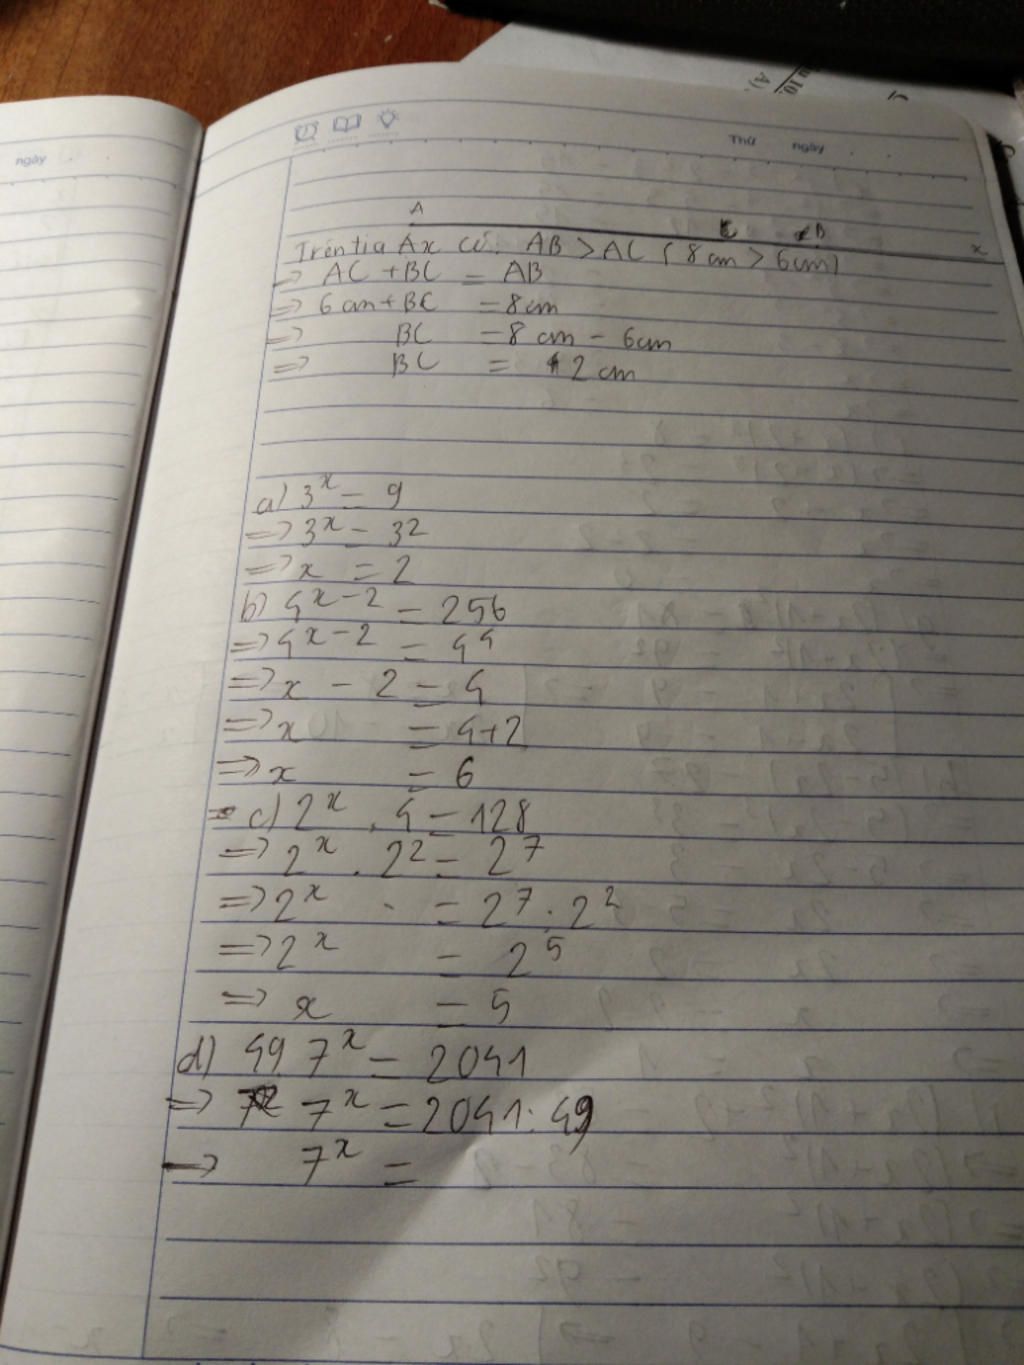 ngày
Thứ ngày
A C B x
Trên tia Ax có: AB > AC ( 8 cm > 6cm)
=> AC + BC = AB
=> 6 cm + BC = 8 cm
=> BC = 8 cm - 6cm
=> BC = 2 cm
a) 3^x = 9
=> 3^x = 3^2
=> x = 2
b) 4^x-2 = 256
=> 4^x-2 = 4^4
=> x - 2 = 4
=> x = 4+2
=> x = 6
c) 2^x . 4 = 128
=> 2^x . 2^2 = 2^7
=> 2^x = 2^7 : 2^2
=> 2^x = 2^5
=> x = 5
d) 49. 7^x = 2041
=> 7^x = 2041 : 49
=> 7^x =